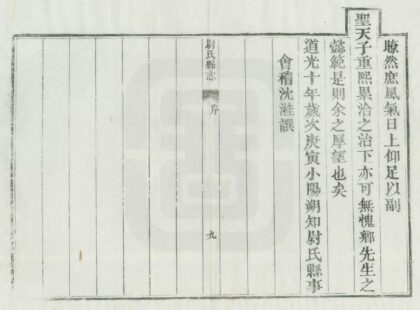 瞭然庶風氣日上仰足以副
聖天子重熙累洽之治下亦可無愧鄉先生之
懿範是則余之厚望也矣
道光十年歲次庚寅小陽朔知尉氏縣事
會稽沈淮譔
尉氏縣志
序
九